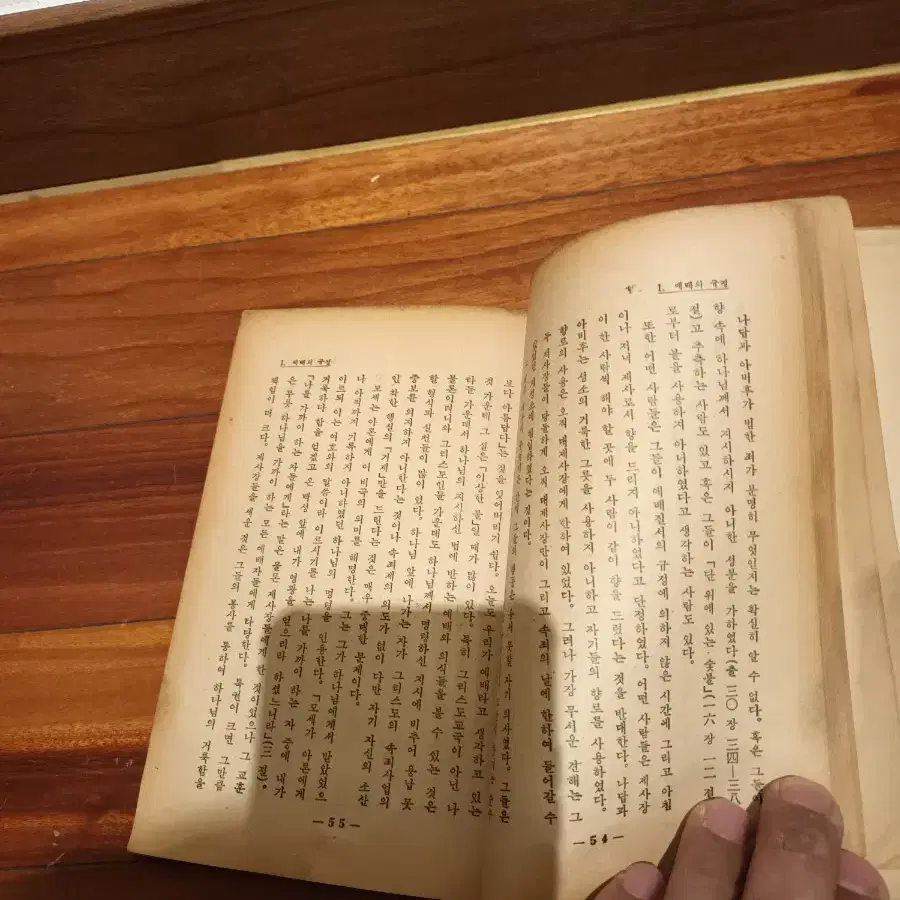 1. 예배의 규정
나답과 아비후가 범한 죄가 분명히 무엇인지는 확실히 알 수 없다。 혹은 그들이
향 속에 하나님께서 지시하시지 아니한 성분을 가하였다(출 三〇장 三四—三八
절)고 추측하는 사람도 있고 혹은 그들이 「단 위에 있는 숯불」(一六장 一二절
로부터 불을 사용하지 아니하였다고 생각하는 사람도 있다。
또한 어떤 사람들은 그들이 예배질서의 규정에 의하지 않은 시간에 그리고 아침
이나 저녁 제사로서 향을 드리지 아니하였다고 단정하였다。 어떤 사람들은 제사장
이 한 사람씩 해야 할 곳에 두 사람이 같이 향을 드렸다는 것을 반대한다。 나답과
아비후는 성소의 거룩한 그릇을 사용하지 아니하고 자기들의 향로를 사용하였다。
향로의 사용은 오직 대제사장에게 한하여 있었다。 그러나 가장 무서운 견해는 그
두 제사장들이 담대하게 오직 대제사장만이 그리고 속죄의 날에 한하여 들어갈 수
지성소에 침입하였다는 것이다。
자기 의사였다。 그들은
—54—
1. 예배의 규정
보다 아름답다」는 것을 잊어버리기 쉽다。 오늘도 우리가 예배라고 생각하고 있는
것 가운데 그 실은 「이상한 불」일 때가 많이 있다。 특히 그리스도교국이 아닌 나
라들 가운데서 하나님의 지시하신 법에 반하는 예배와 의식들을 볼 수 있는 것은
물론이려니와 그리스도인들 가운데도 하나님께서 명령하신 지시에 비추어 용납 못
할 형식과 실천들이 많이 있다。 하나님 앞에 나가는 자가 그리스도의 속죄사업의
중보를 의지하지 아니한다는 것이나 속죄제의 의도가 없이 다만 자기 자신의 소산
인 착한 행실의 「거제」만을 드린다는 것은 매우 중대한 문제이다。
모세는 아론에게 이 비극의 의미를 해명한다。 그는 그가 하나님에게서 받았었으
나 아직까지 기록하지 아니하였던 하나님의 명령을 인용한다。 「모세가 아론에게
이르되 이는 여호와의 말씀이라 이르시기를 나는 나를 가까이 하는 자 중에 내가
거룩하다 함을 얻겠고 온 백성 앞에 내가 영광을 얻으리라 하셨느니라」(三절)。
「나를 가까이 하는 자들에게」라는 말은 물론 제사장들에게 한 것이었으나 그 교훈
은 무릇 하나님을 가까이 하는 모든 예배자들에게 타당한다。 특권이 크면 그만큼
책임이 더 크다。 제사장들을 세운 것은 그들의 봉사를 통하여 하나님의 거룩함을
—55—